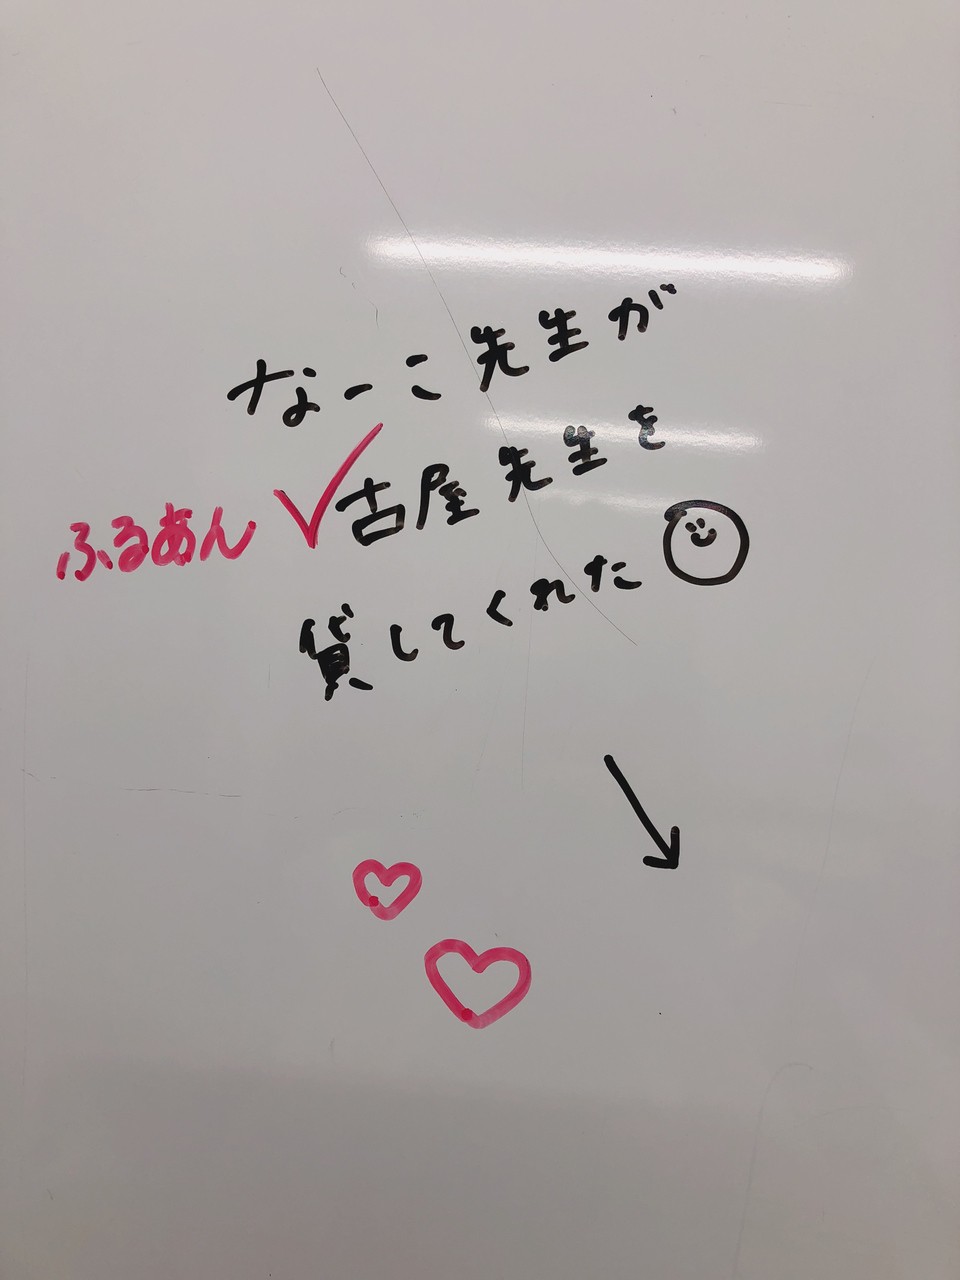 なーこ先生が
ふるあん
古屋先生を
貸してくれた